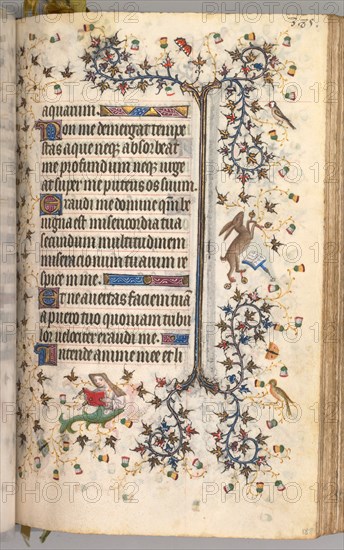 aquarum.
Non me demergat tempe
stas aque neq; absorbeat
me profundum neq; urge
at super me puteus os suum.
Exaudi me domine qm be
nigna est misericordia tua
secundum multitudinem
miseracionum tuarum re
spice in me.
Et ne avertas faciem tuā
a puero tuo quoniam tribu
lor velociter exaudi me.
Intende anime mee et li